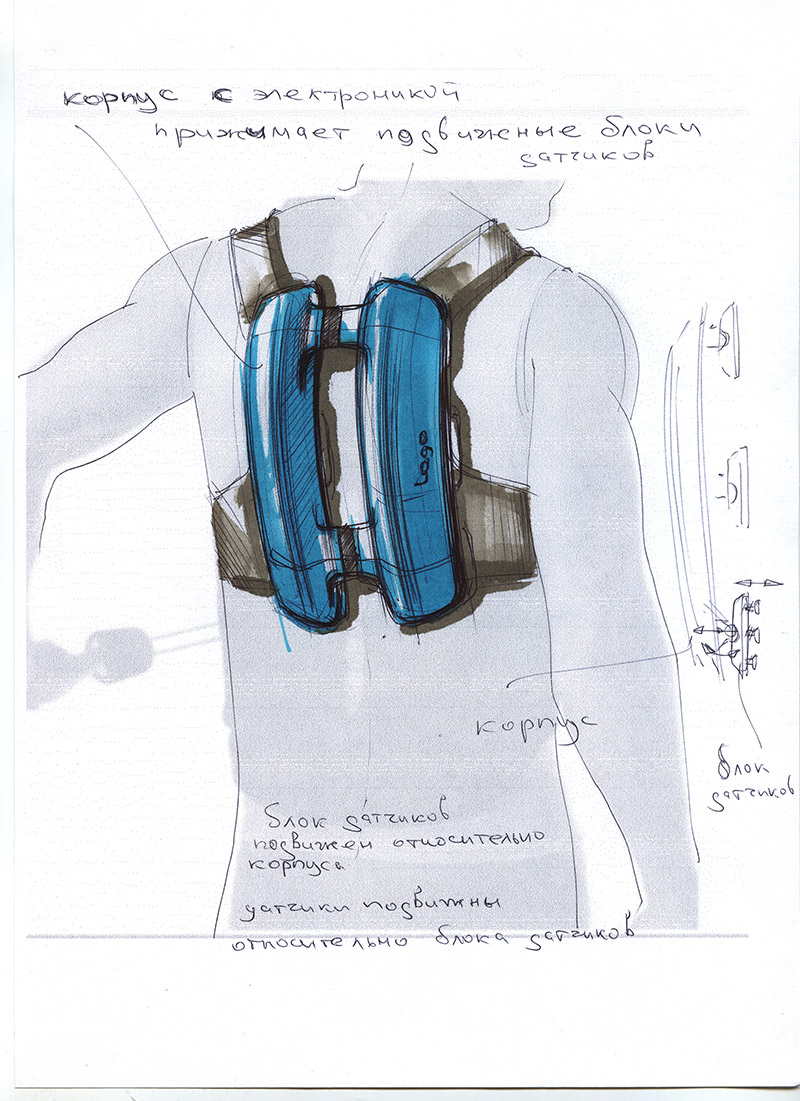 корпус с электроникой
прижимает подвижные блоки
датчиков
Logo
корпус
блок
датчиков
блок датчиков
подвижен относительно
корпуса
датчики подвижны
относительно блока датчиков